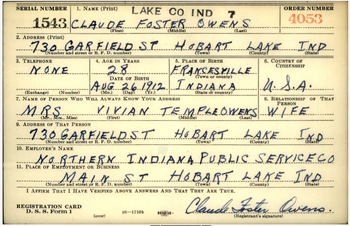 LAKE CO IND 7
SERIAL NUMBER 1. NAME (Print) ORDER NUMBER
1543 CLAUDE FOSTER OWENS 4053
(First) (Middle) (Last)
2. ADDRESS (Print)
730 GARFIELD ST HOBART LAKE IND
(Number and street or R. F. D. number) (Town) (County) (State)
3. TELEPHONE 4. AGE IN YEARS 5. PLACE OF BIRTH 6. COUNTRY OF CITIZENSHIP
NONE 28 FRANSESVILLE
DATE OF BIRTH (Town or county)
AUG 26 1912 INDIANA U.S.A.
(Exchange) (Number) (Mo.) (Day) (Yr.) (State or country)
7. NAME OF PERSON WHO WILL ALWAYS KNOW YOUR ADDRESS 8. RELATIONSHIP OF THAT PERSON
MRS VIVIAN TEMPLE OWENS WIFE
(Mr., Mrs., Miss) (First) (Middle) (Last)
9. ADDRESS OF THAT PERSON
730 GARFIELD ST HOBART LAKE IND
(Number and street or R. F. D. number) (Town) (County) (State)
10. EMPLOYER'S NAME
NORTHERN INDIANA PUBLIC SERVICE CO
11. PLACE OF EMPLOYMENT OR BUSINESS
MAIN ST HOBART LAKE IND
(Number and street or R. F. D. number) (Town) (County) (State)
I AFFIRM THAT I HAVE VERIFIED ABOVE ANSWERS AND THAT THEY ARE TRUE.
REGISTRATION CARD
D. S. S. Form 1 16—17105 Claude Foster Owens.
(over) (Registrant's signature)